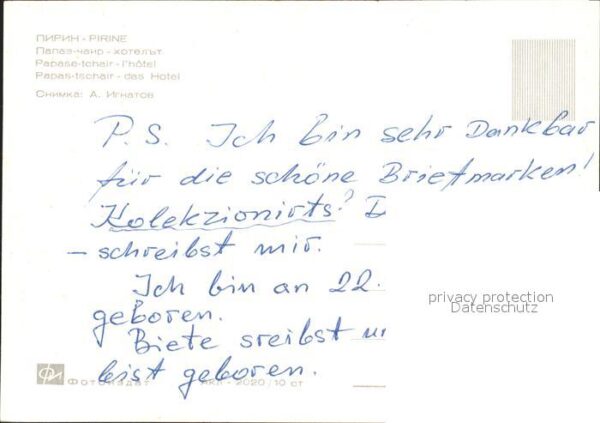 ПИРИН - PIRINE
Папаз-чаир - хотелът
Papase-tchair - l'hôtel
Papas-tschair - das Hotel
Снимка: А. Игнатов
P.S. Ich bin sehr Dankbar
für die schöne Briefmarken!
Kolekzionirts? I
- schreibst mir.
Ich bin an 22.
geboren.
Biete sreibst m
bist geboren.
privacy protection
Datenschutz
Фотоиздат 2020/10 ст